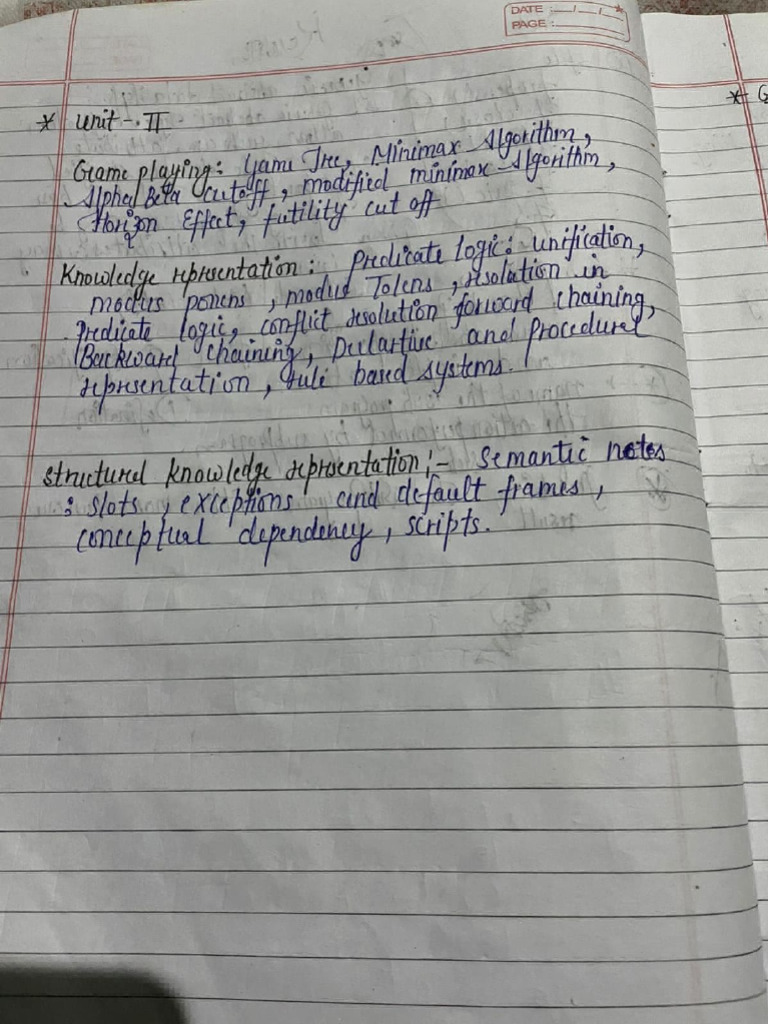 DATE : __/__/__
PAGE :
* Unit - . II
Game playing : Game Tree, Minimax Algorithm,
Alpha Beta cutoff, modified minimax Algorithm,
Horizon Effect, futility cut off
Knowledge representation : Predicate logic : unification,
modus ponens, modus Tolens, resolution in
Predicate logic, conflict resolution forward chaining,
Backward chaining, Declartive and Procedural
representation, rule based systems.
Structural knowledge representation ;- Semantic notes
: slots, exceptions and default frames,
conceptual dependency, scripts.